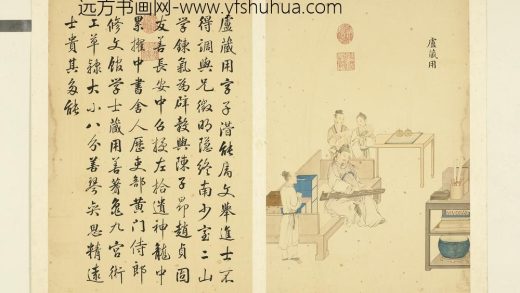 远方书画网-www.yfshuhua.com
盧藏用
盧藏用字子潜能属文舉進士不
得調與兄徵明隐終南少室二山
学鍊氣為辟穀與陳子昂趙貞固
友善長安中召授左拾遺神龍中
累擢中書舍人歷吏部黄门侍郎
修文舘学士藏用善蓍龜九宫術
工草隸大小八分善琴奕思精遠
士貴其多能